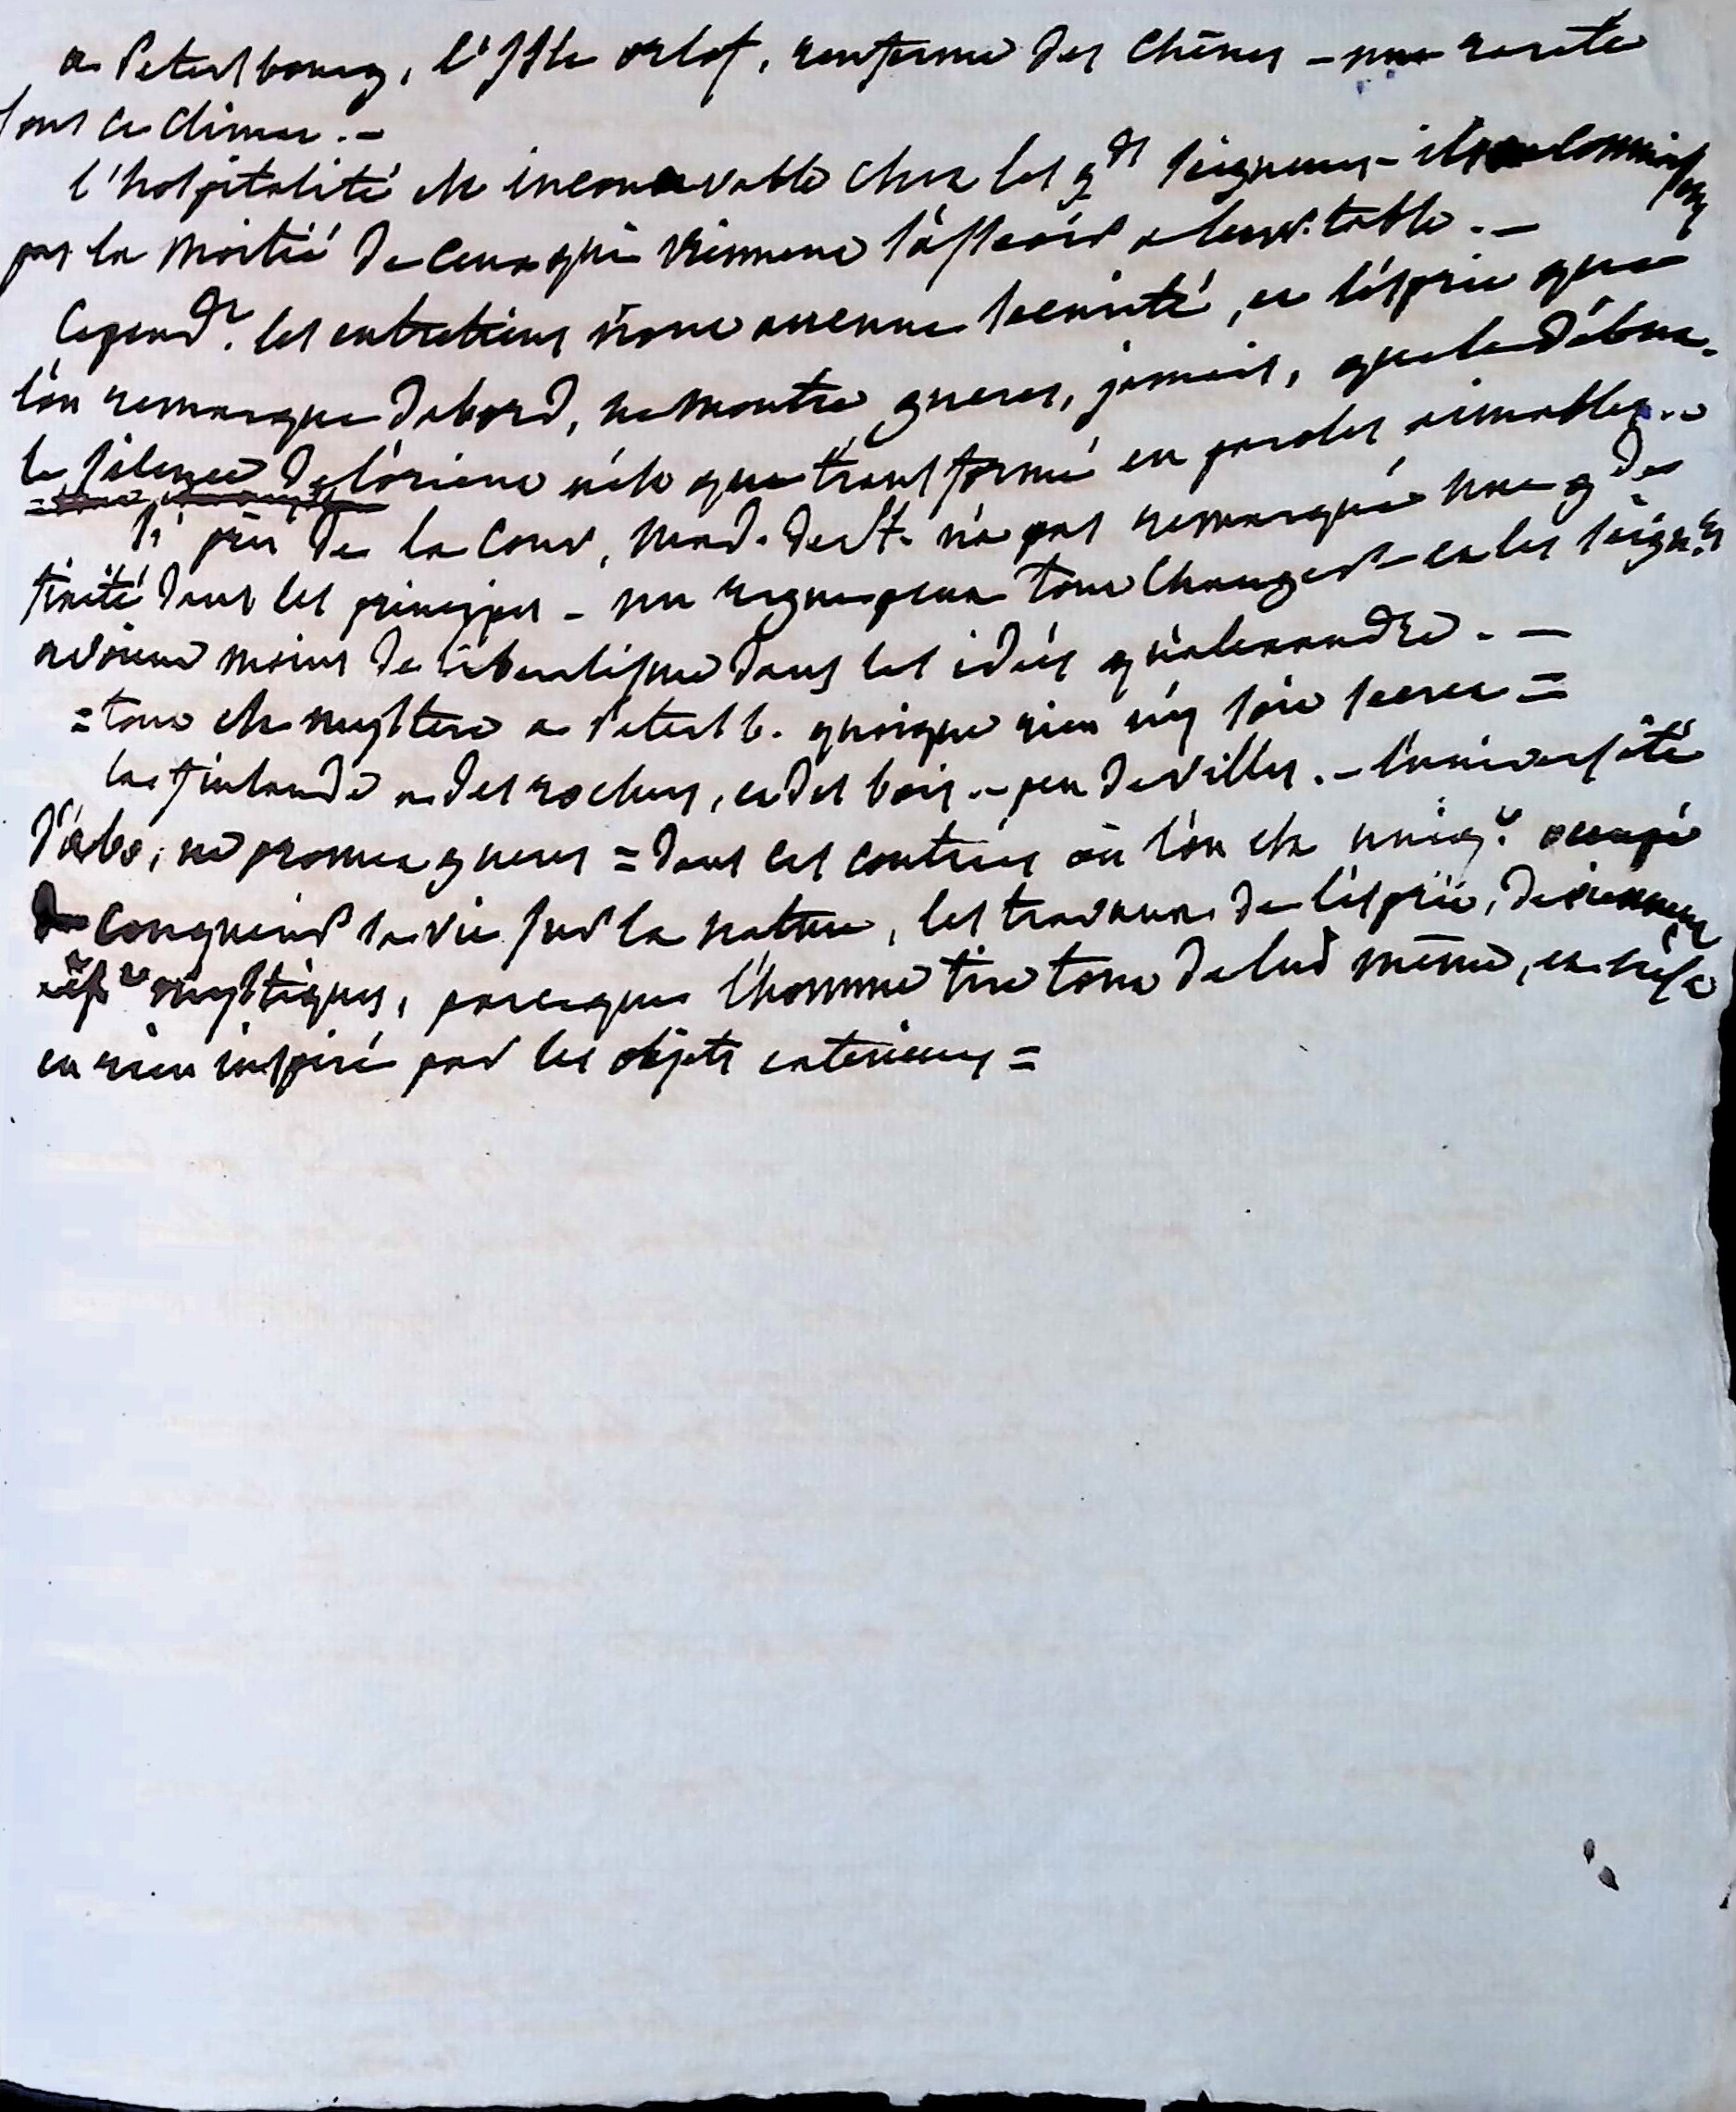 a Petersbourg, l'Isle orlof, renferme des chênes - une rareté
sous ce climat. -
l'hospitalité est inconcevable chez les gds seigneurs - ils ne connaissent
pas la moitié de ceux qui viennent s'asseoir a leur table. -
Cependt. les entretiens n'ont aucune sécurité, et l'esprit que
l'on remarque d'abord, ne montre gueres, jamais, que le début.
le silence de l'orient n'est que transformé en paroles aimables. -
Si près de la Cour, Mad. de St. n'a pas remarqué une gde
fixité dans les principes - un regne peut tout changer - et les seigrs
avoient moins de liberalisme dans les idées qu'alexandre. -
= tout est mystere a Petersb. quoique rien n'y soit secret =
la finlande a des rochers, et des bois - peu de villes. - l'université
d'abo, ne promet gueres = dans les contrées où l'on est uniqt. occupé
de conquerir sa vie sur la nature, les travaux de l'esprit, deviennent
mystiques, parceque l'homme tire tout de lui même, et n'est
en rien inspiré par les objets exterieurs =